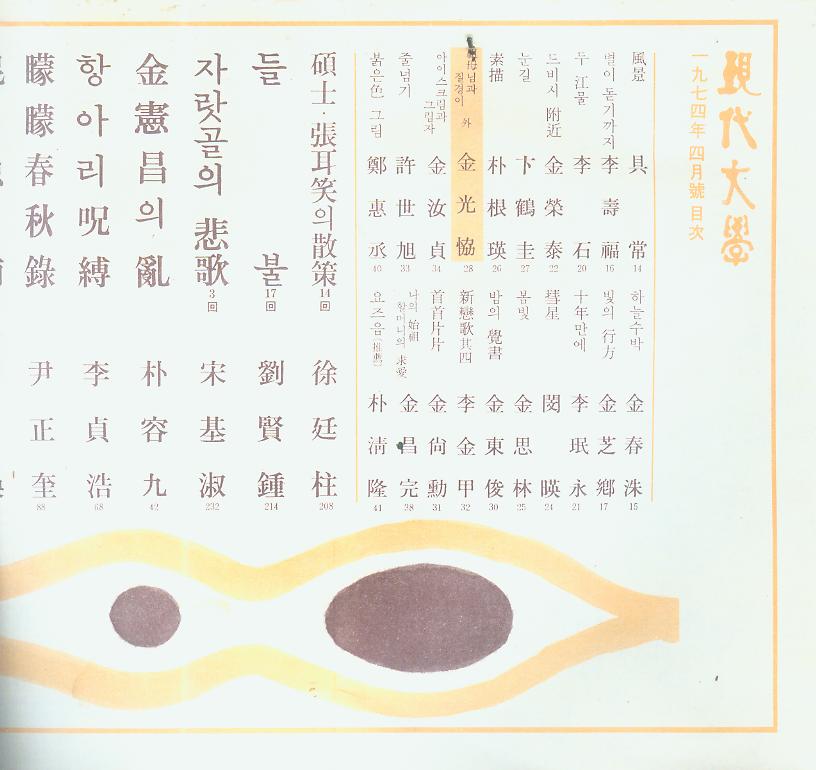 現代文學
一九七四年 四月號 目次
風景 具常 14
별이 돋기까지 李壽福 16
두 江물 李石 20
드비시 附近 金榮泰 22
눈길 卞鶴圭 27
素描 朴根瑛 26
母님과 질경이 外 金光協 28
아이스크림과 그림자 金汝貞 34
줄넘기 許世旭 33
붉은色 그림 鄭惠丞 40
하늘수박 金春洙 15
빛의 行方 金芝鄕 17
十年만에 李珉永 21
彗星 閔暎 24
봄빛 金思林 25
밤의 覺書 金東俊 30
新戀歌其四 李金甲 32
首首片片 金尙勳 31
나의 始祖 할머니의 求愛 金昌完 38
요즈음 朴淸隆 41
碩士·張耳笑의 散策 14回 徐廷柱 208
들불 17回 劉賢鍾 214
자랏골의 悲歌 3回 宋基淑 232
金憲昌의 亂 朴容九 42
항아리 呪縛 李貞浩 68
曚曚春秋錄 尹正奎 88